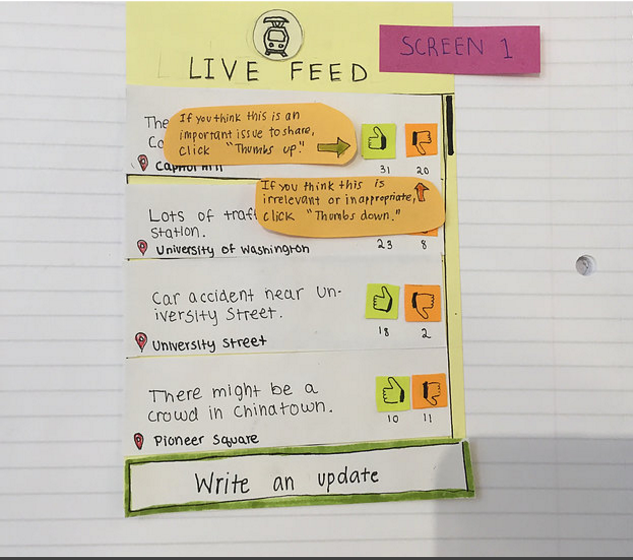 SCREEN 1
LIVE FEED
The
Co
If you think this is an
important issue to share,
click "Thumbs up."
Capitol Hill
31 20
If you think this is
irrelevant or inappropriate,
click "Thumbs down."
Lots of traf
station.
University of Washington
23 8
Car accident near Un-
iversity Street.
18 2
University Street
There might be a
crowd in Chinatown.
10 11
Pioneer Square
Write an update